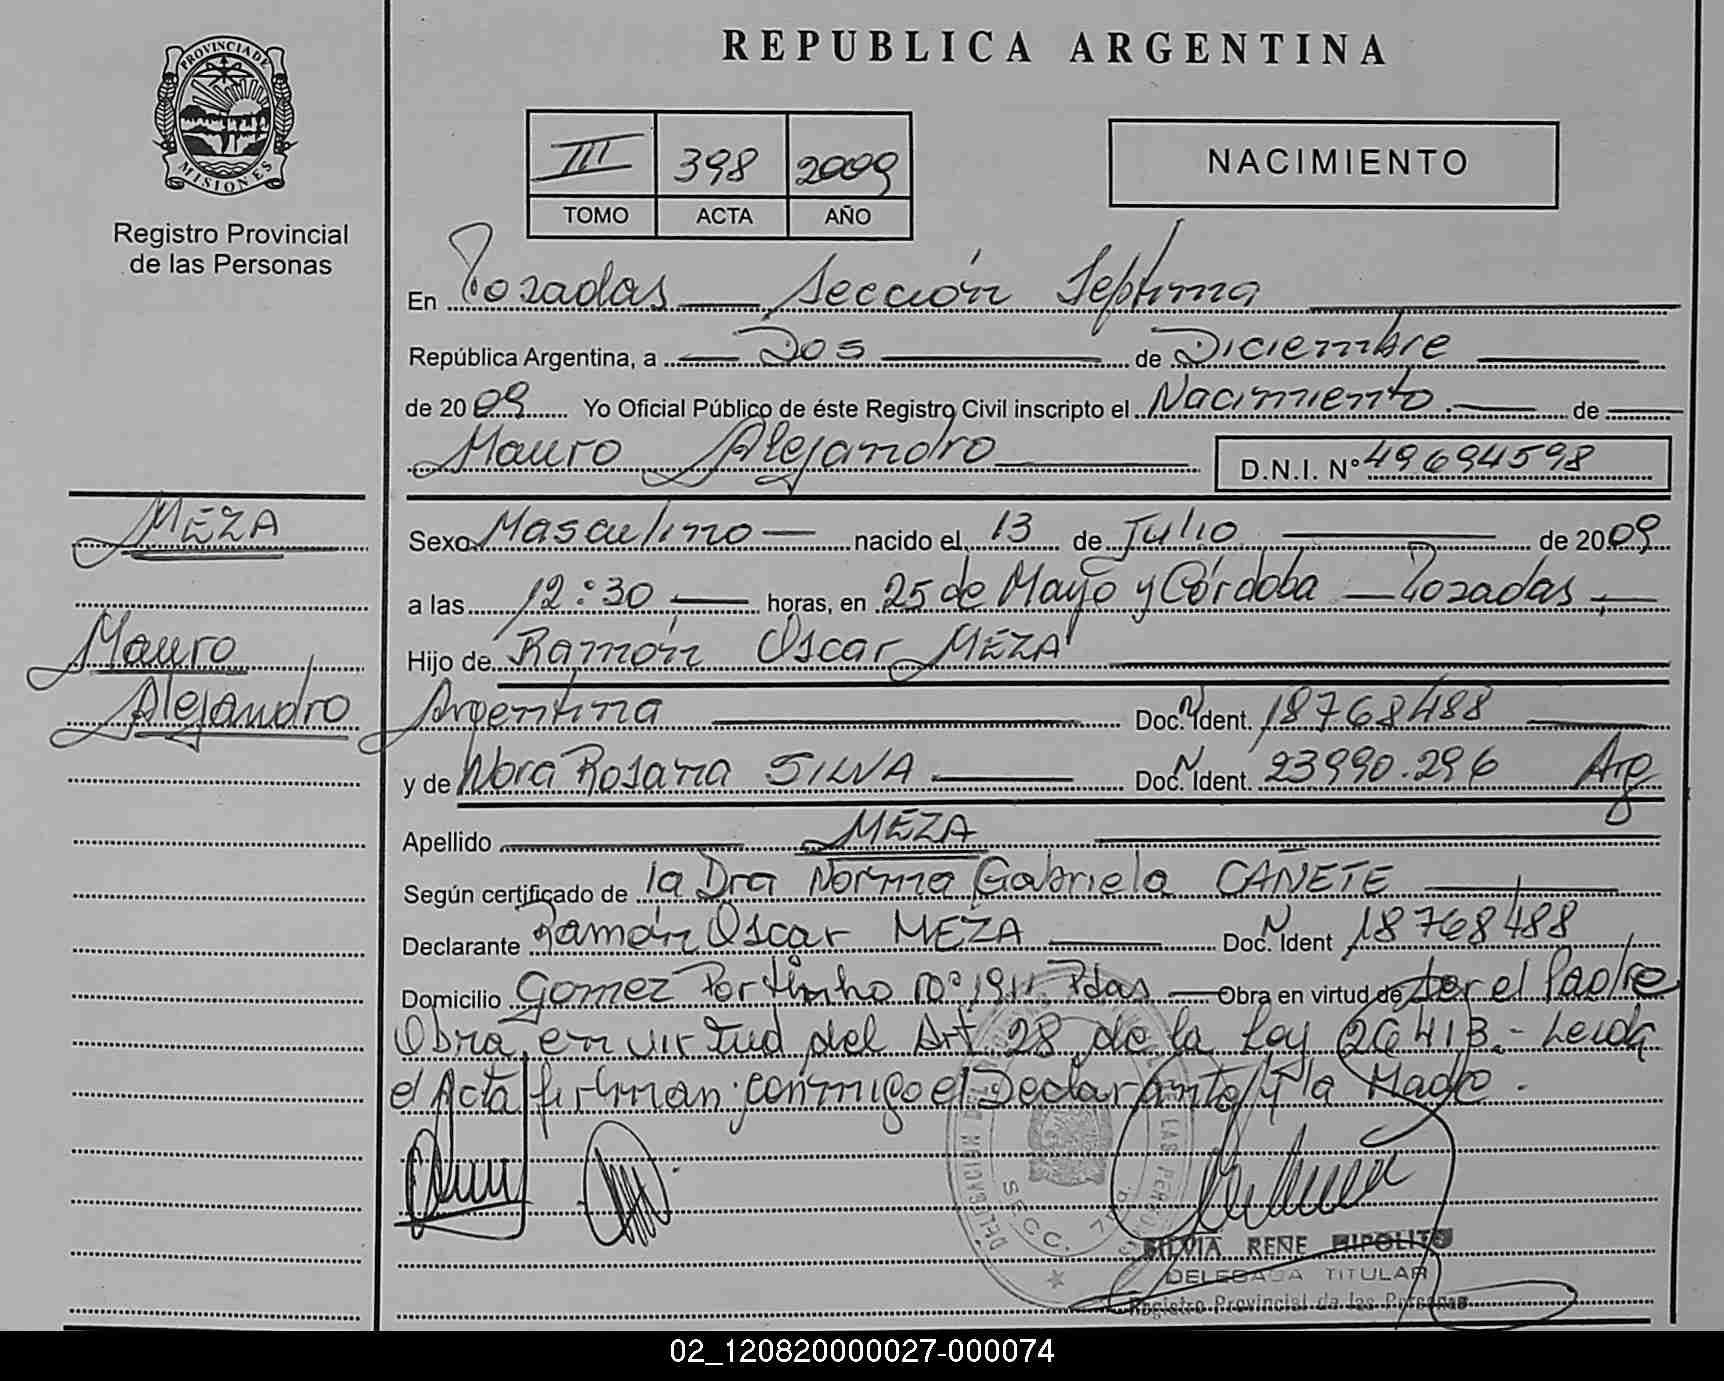 REPUBLICA ARGENTINA
PROVINCIA DE
MISIONES
Registro Provincial
de las Personas
III 398 2009
TOMO ACTA AÑO
NACIMIENTO
En Posadas Sección Septima
República Argentina, a Dos de Diciembre
de 2009 Yo Oficial Público de éste Registro Civil inscripto el Nacimiento de
Mauro Alejandro D.N.I. Nº 49694598
MEZA
Mauro
Alejandro
Sexo Masculino nacido el 13 de Julio de 2009
a las 12:30 horas, en 25 de Mayo y Córdoba Posadas
Hijo de Ramón Oscar MEZA
Argentina Doc. N Ident. 18768488
y de Nora Rosana SILVA Doc. N Ident. 23990.296 Arg
Apellido MEZA
Según certificado de la Dra Norma Gabriela CAÑETE
Declarante Ramón Oscar MEZA Doc. N Ident 18768488
Domicilio Gomez Portinho Nº 1911 Pdas Obra en virtud de ser el Padre
Obra en virtud del Art 28 de la Ley 26413.- Leida
el Acta firman conmigo el Declarante y la Madre.
SECC. 7
SILVIA RENE HIPOLITO
DELEGADA TITULAR
Registro Provincial de las Personas
02_120820000027-000074